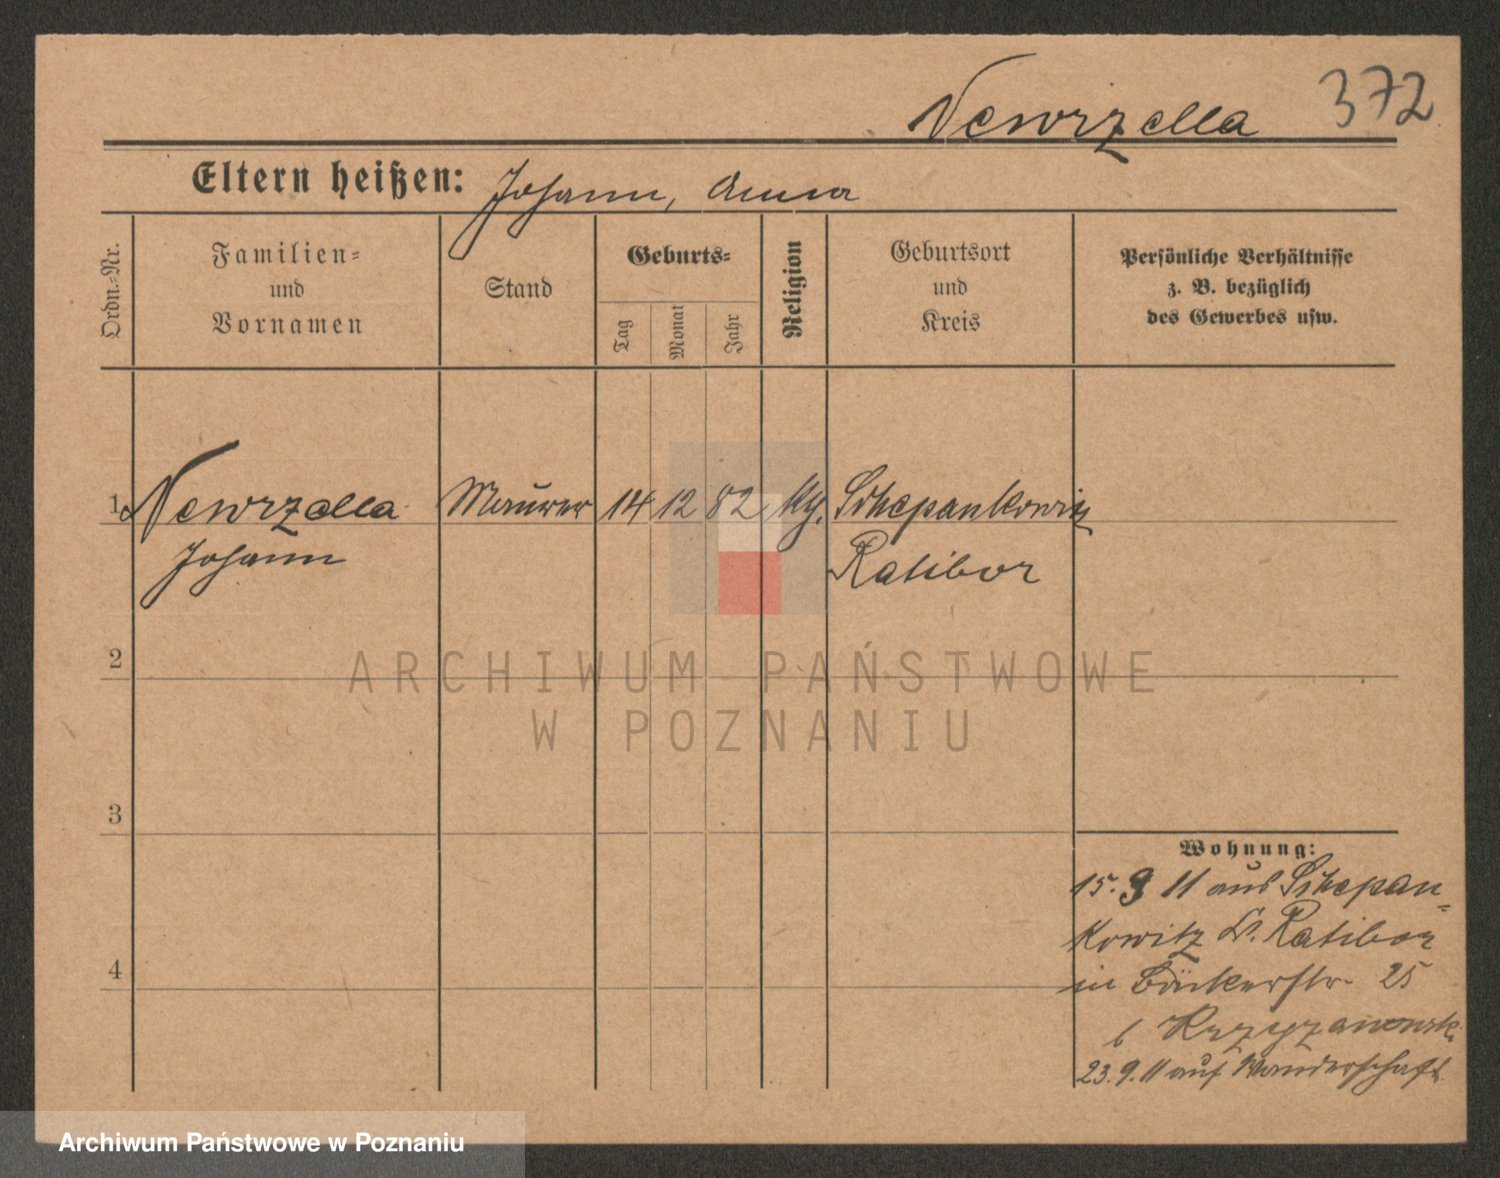 Newrzella 372
Eltern heißen: Johann, Anna
Ordn.-Nr.
Familien-
und
Vornamen
Stand
Geburts-
Tag
Monat
Jahr
Religion
Geburtsort
und
Kreis
Persönliche Verhältnisse
z. B. bezüglich
des Gewerbes usw.
1 Newrzella Maurer 14 12 82 kg. Schepankowitz
Johann Ratibor
2
3
4
Wohnung:
15. 9 11 aus Schepan-
kowitz Kr. Ratibor
in Bäckerstr. 25
b Krzyzanowski
23. 9. 11 auf Wanderschaft
ARCHIWUM PAŃSTWOWE
W POZNANIU
Archiwum Państwowe w Poznaniu